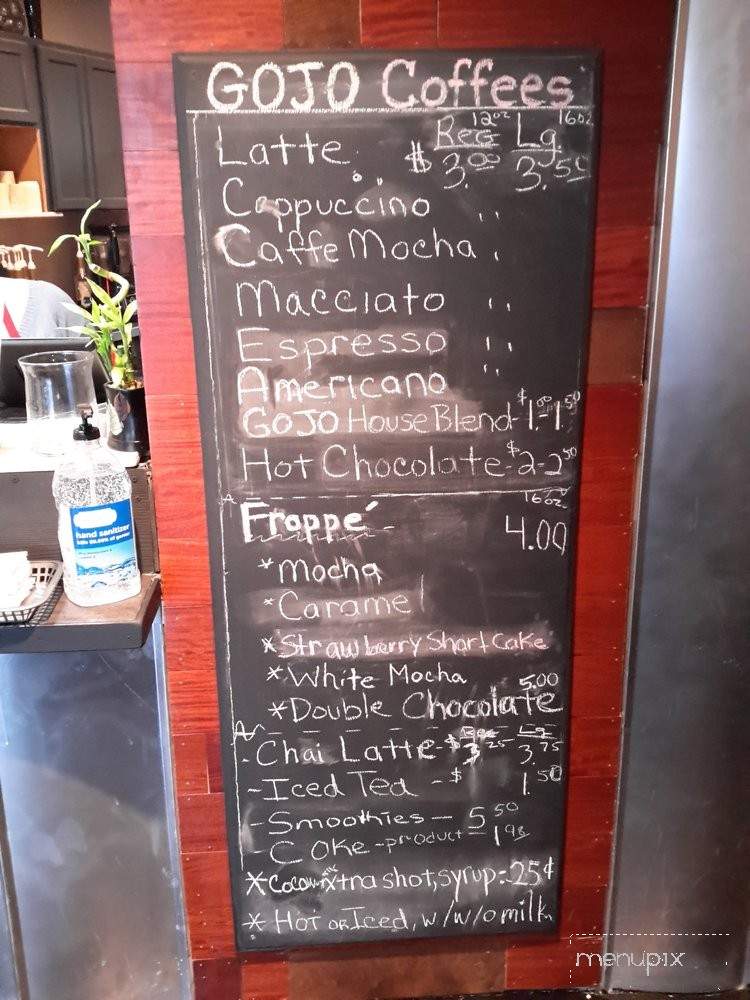 GOJO Coffees
12oz 16oz
Latte Reg Lg.
$ 3.00 3.50
Cappuccino ,,
Caffe Mocha ,
Macciato ,,
Espresso ,,
Americano ,,
GOJO House Blend-$1.00-1.50
Hot Chocolate-$2-2.50
16oz
Frappé 4.00
*Mocha
*Caramel
*Strawberry Short Cake
*White Mocha 5.00
*Double Chocolate
Reg Lg
-Chai Latte-$3.25-3.75
-Iced Tea -$1.50
-Smoothies - 5.50
-COKe-product-1.98
*Xtra shot, syrup:.25¢
*Hot or Iced, w/w/o milk
hand sanitizer
menupix